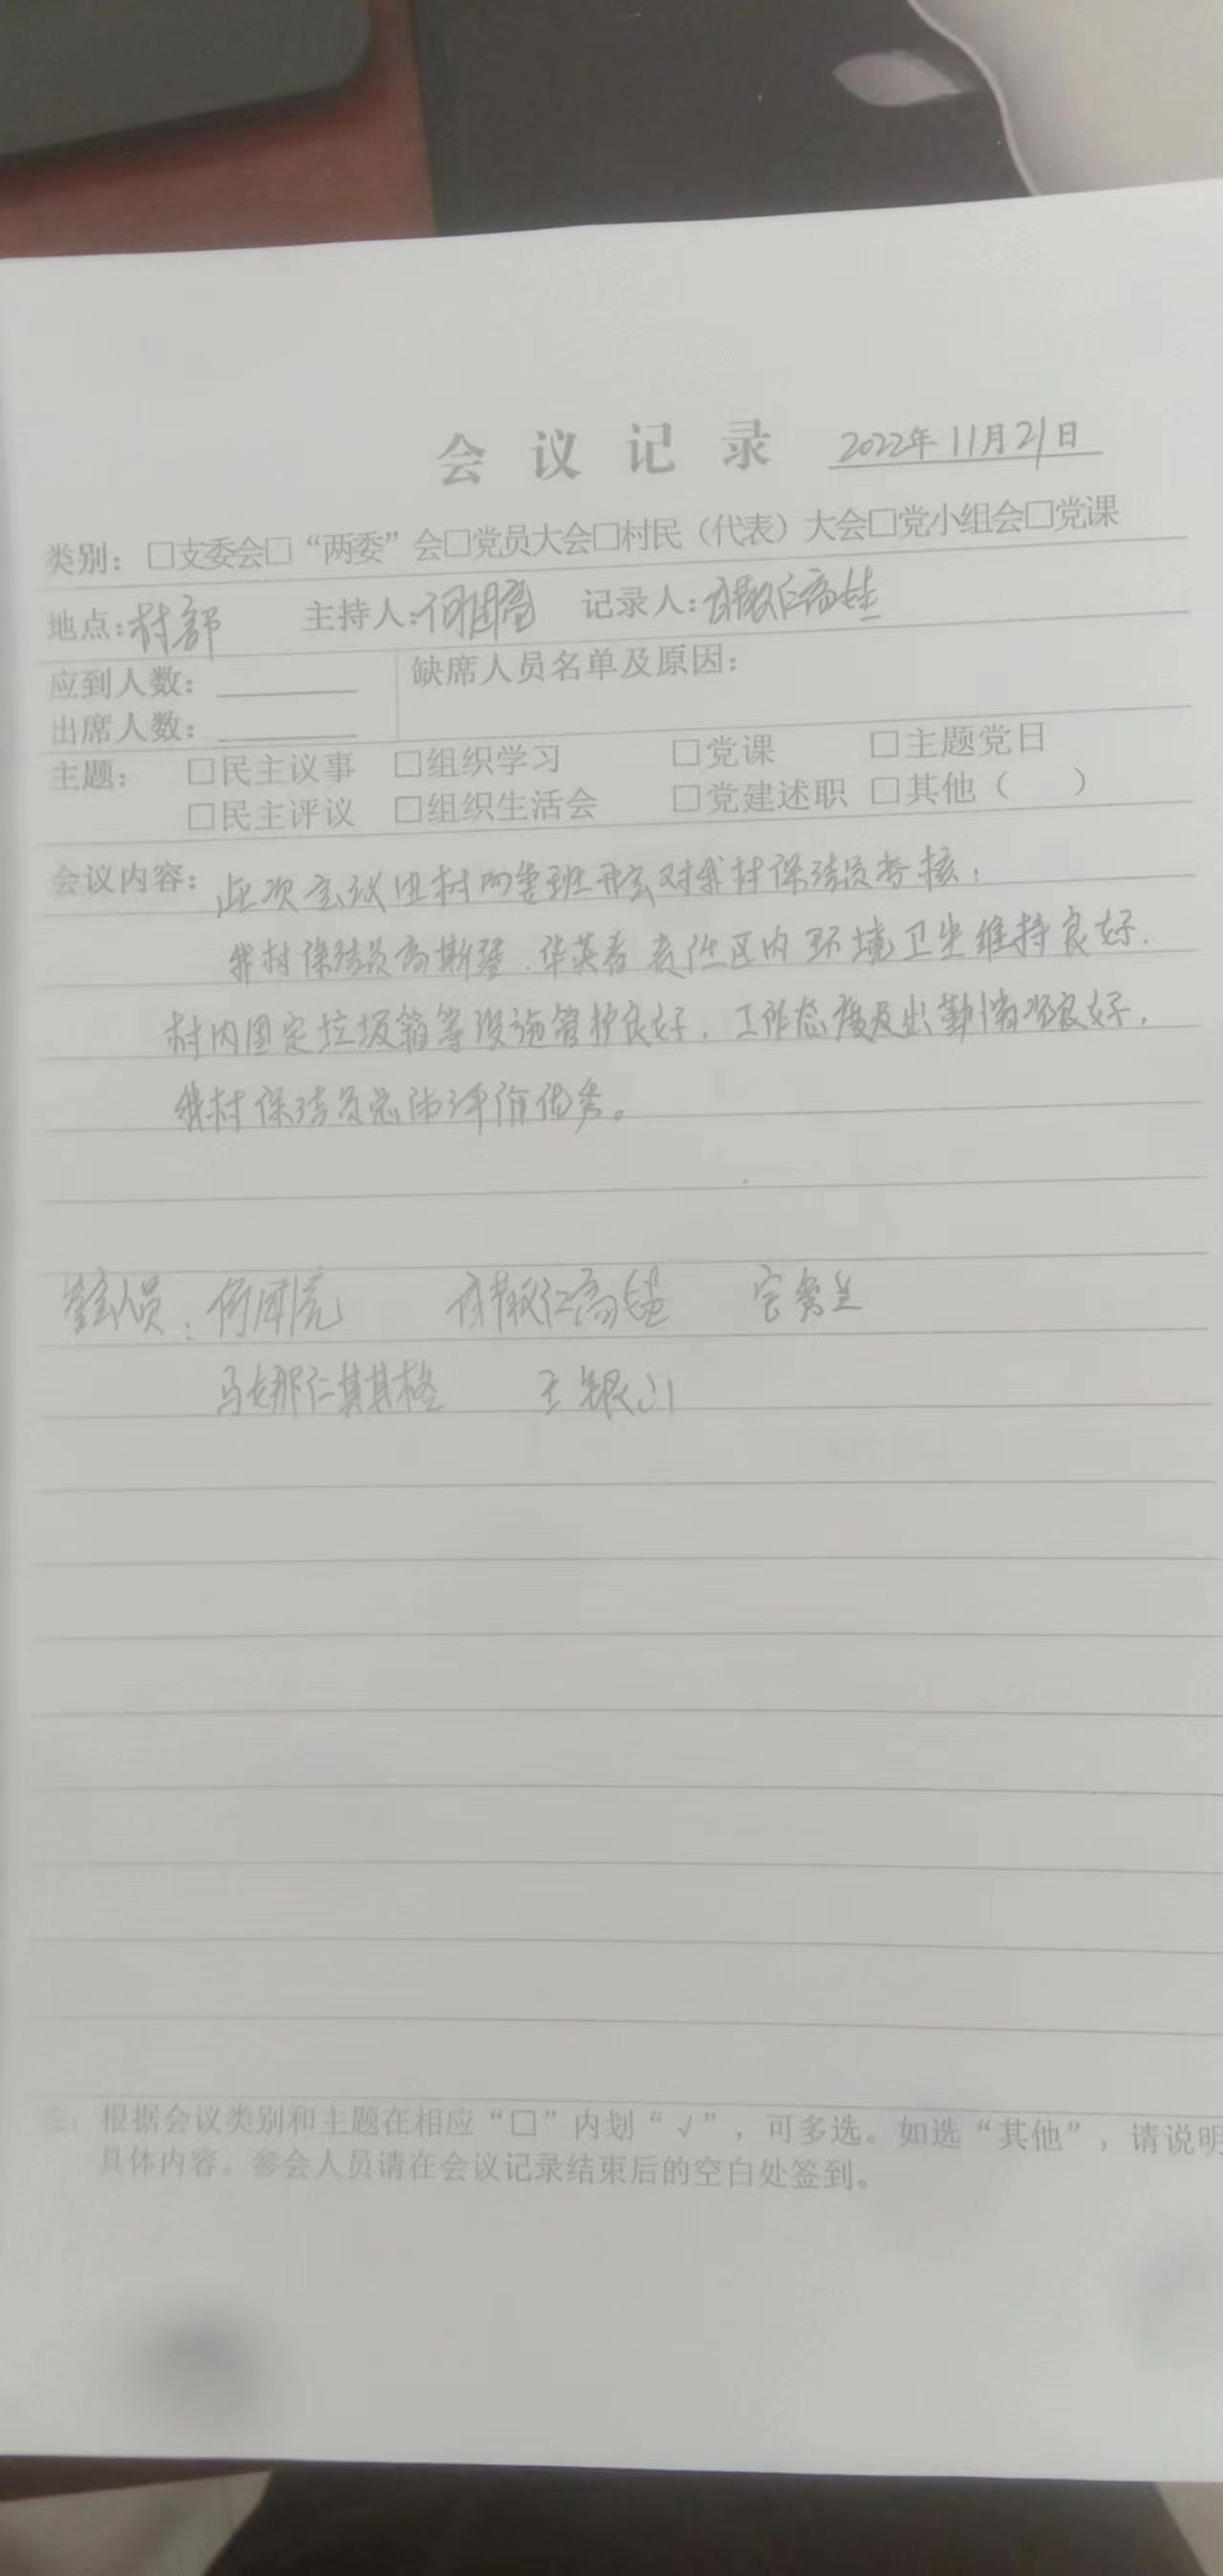 会议记录 2022年11月21日
类别：□支委会□“两委”会□党员大会□村民（代表）大会□党小组会□党课
地点：村部 主持人： 记录人：
应到人数： 缺席人员名单及原因：
出席人数：
主题： □民主议事 □组织学习 □党课 □主题党日
□民主评议 □组织生活会 □党建述职 □其他（ ）
会议内容：此次会议由村两委班开会对我村保洁员考核：
我村保洁员高斯琴、华英春责任区内环境卫生维持良好.
村内固定垃圾箱等设施管护良好.工作态度及出勤情况良好,
我村保洁员总体评价优秀。
参会人员：
马娜仁其其格 王银山
注：根据会议类别和主题在相应“□”内划“√”，可多选。如选“其他”，请说明
具体内容。参会人员请在会议记录结束后的空白处签到。